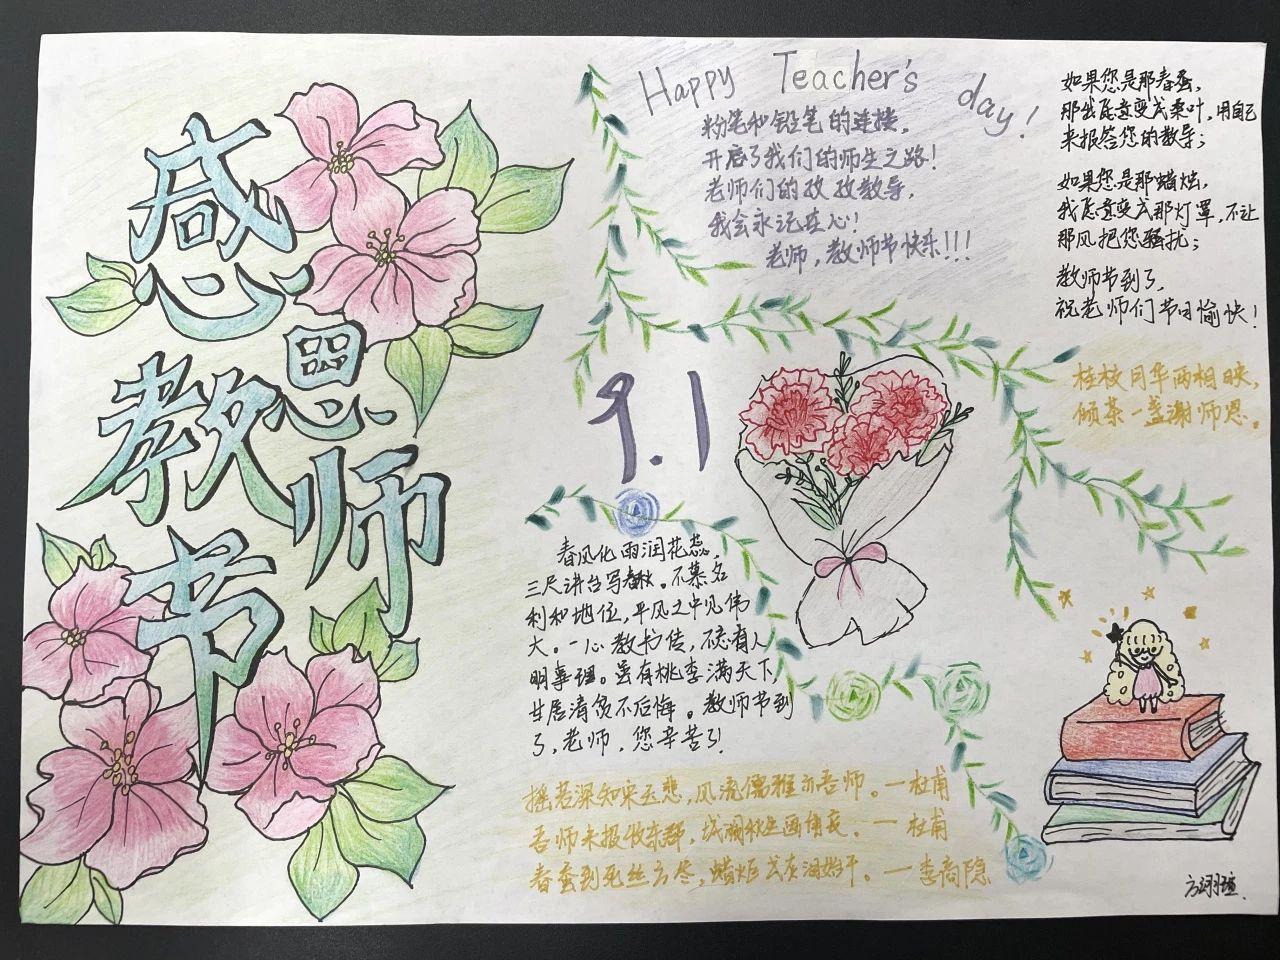 感恩
教师
节
Happy Teacher's day!
粉笔和铅笔的连接，
开启了我们的师生之路！
老师们的孜孜教导，
我会永记在心！
老师，教师节快乐!!!
如果您是那春蚕，
那我愿意变成桑叶，用自己
来报答您的教导；
如果您是那蜡烛，
我愿意变成那灯罩，不让
那风把您骚扰；
教师节到了，
祝老师们节日愉快！
桂枝月华两相映，
倾茶一盏谢师恩。
9.1
春风化雨润花蕊，
三尺讲台写春秋。不慕名
利和地位，平凡之中见伟
大。一心教书传，不忘育人
明事理。虽有桃李满天下，
甘居清贫不后悔。教师节到
了，老师，您辛苦了！
摇若深知宋玉悲，风流儒雅亦吾师。—杜甫
吾师来报收东郡，城阙秋生画角哀。—杜甫
春蚕到死丝方尽，蜡炬成灰泪始干。—李商隐